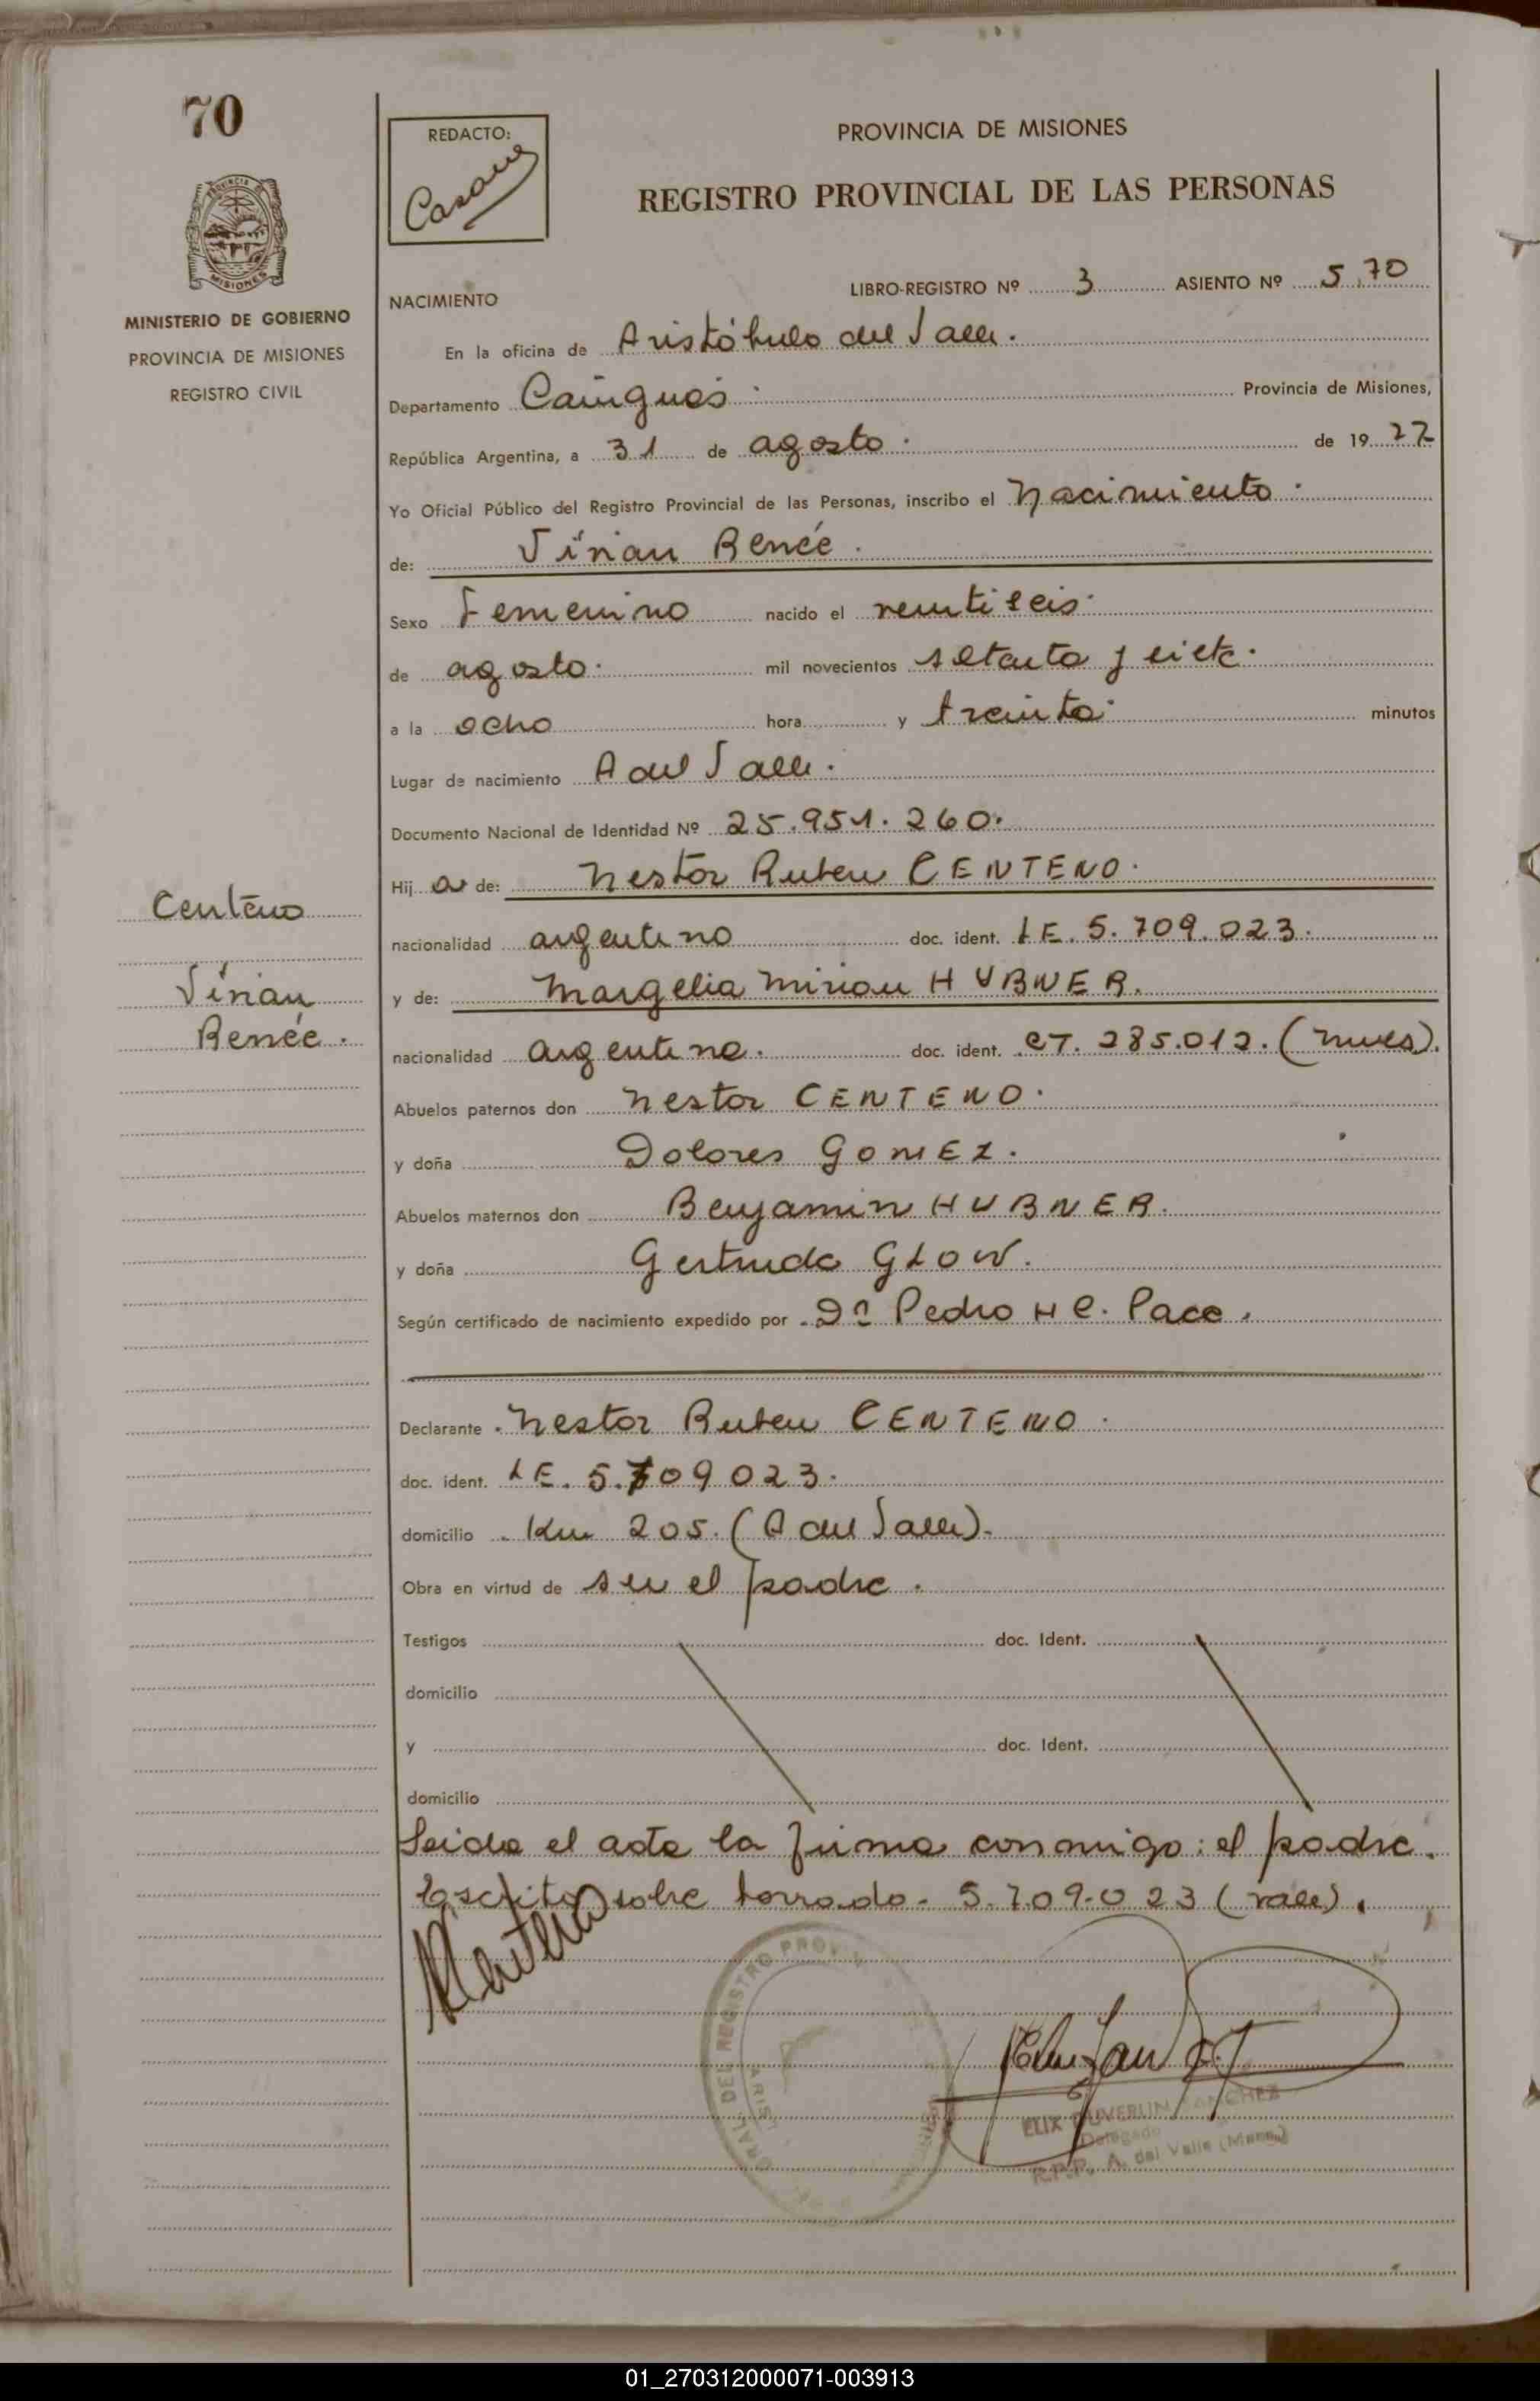 70
REDACTO:
PROVINCIA DE MISIONES
REGISTRO PROVINCIAL DE LAS PERSONAS
PROVINCIA DE
MISIONES
MINISTERIO DE GOBIERNO
PROVINCIA DE MISIONES
REGISTRO CIVIL
NACIMIENTO
LIBRO-REGISTRO Nº 3 ASIENTO Nº 570
En la oficina de Aristóbulo del Valle.
Departamento Cainguás. Provincia de Misiones,
República Argentina, a 31 de agosto. de 1977
Yo Oficial Público del Registro Provincial de las Personas, inscribo el Nacimiento.
de: Virian Renée.
Sexo Femenino nacido el veintiseis.
de agosto. mil novecientos setenta y siete.
a la ocho hora y treinta. minutos
Lugar de nacimiento A del Valle.
Documento Nacional de Identidad Nº 25.951.260.
Hij a de: Nestor Ruben CENTENO.
nacionalidad argentino doc. ident. LE. 5.709.023.
y de: Margelia Mirian HUBNER.
nacionalidad argentina. doc. ident. CT. 285.012. (Mnes).
Abuelos paternos don Nestor CENTENO.
y doña Dolores GOMEZ.
Abuelos maternos don Benjamin HUBNER.
y doña Gertruda GLOW.
Según certificado de nacimiento expedido por Dr Pedro H C. Pace.
Centeno
Virian
Renée.
Declarante Nestor Ruben CENTENO.
doc. ident. LE. 5.709023.
domicilio Km 205. (A del Valle).
Obra en virtud de ser el padre.
Testigos doc. Ident.
domicilio
y doc. Ident.
domicilio
Leida el acta la firma conmigo: el padre.
Escrito sobre borrado. 5.709.023 (vale).
DEL REGISTRO PROV
ARIST
ELIX DUVERLIN SANCHEZ
Delegado
R.P.P. A. del Valle (Mnes.)
01_270312000071-003913